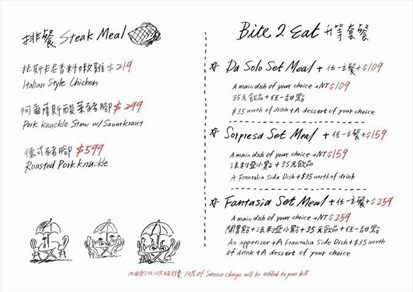 排餐 Steak Meal
托斯卡尼香料嫩雞 $219
Italian Style Chicken
阿爾薩斯酸菜豬腳 $299
Pork Knuckle Stew w/Sauerkraut
德式豬腳 $599
Roasted Pork Knuckle
Bite 2 Eat 升等套餐
Da Solo Set Meal + 任一主餐+$109
A main dish of your choice +NT$109
35元飲品+任一甜點
$35 worth of drink + A dessert of your choice
Sorpresa Set Meal + 任一主餐+$159
A main dish of your choice +NT$159
法利登小點+35元飲品
A Frantalia Side Dish + $35 worth of drink
Fantasia Set Meal + 任一主餐+$259
A main dish of your choice +NT$259
開胃點+法利登小點+35元飲品+任一甜點
An appetizer + A Frantalia Side Dish + $35 worth
of drink + A dessert of your choice
10% of Service charge will be added to your bill